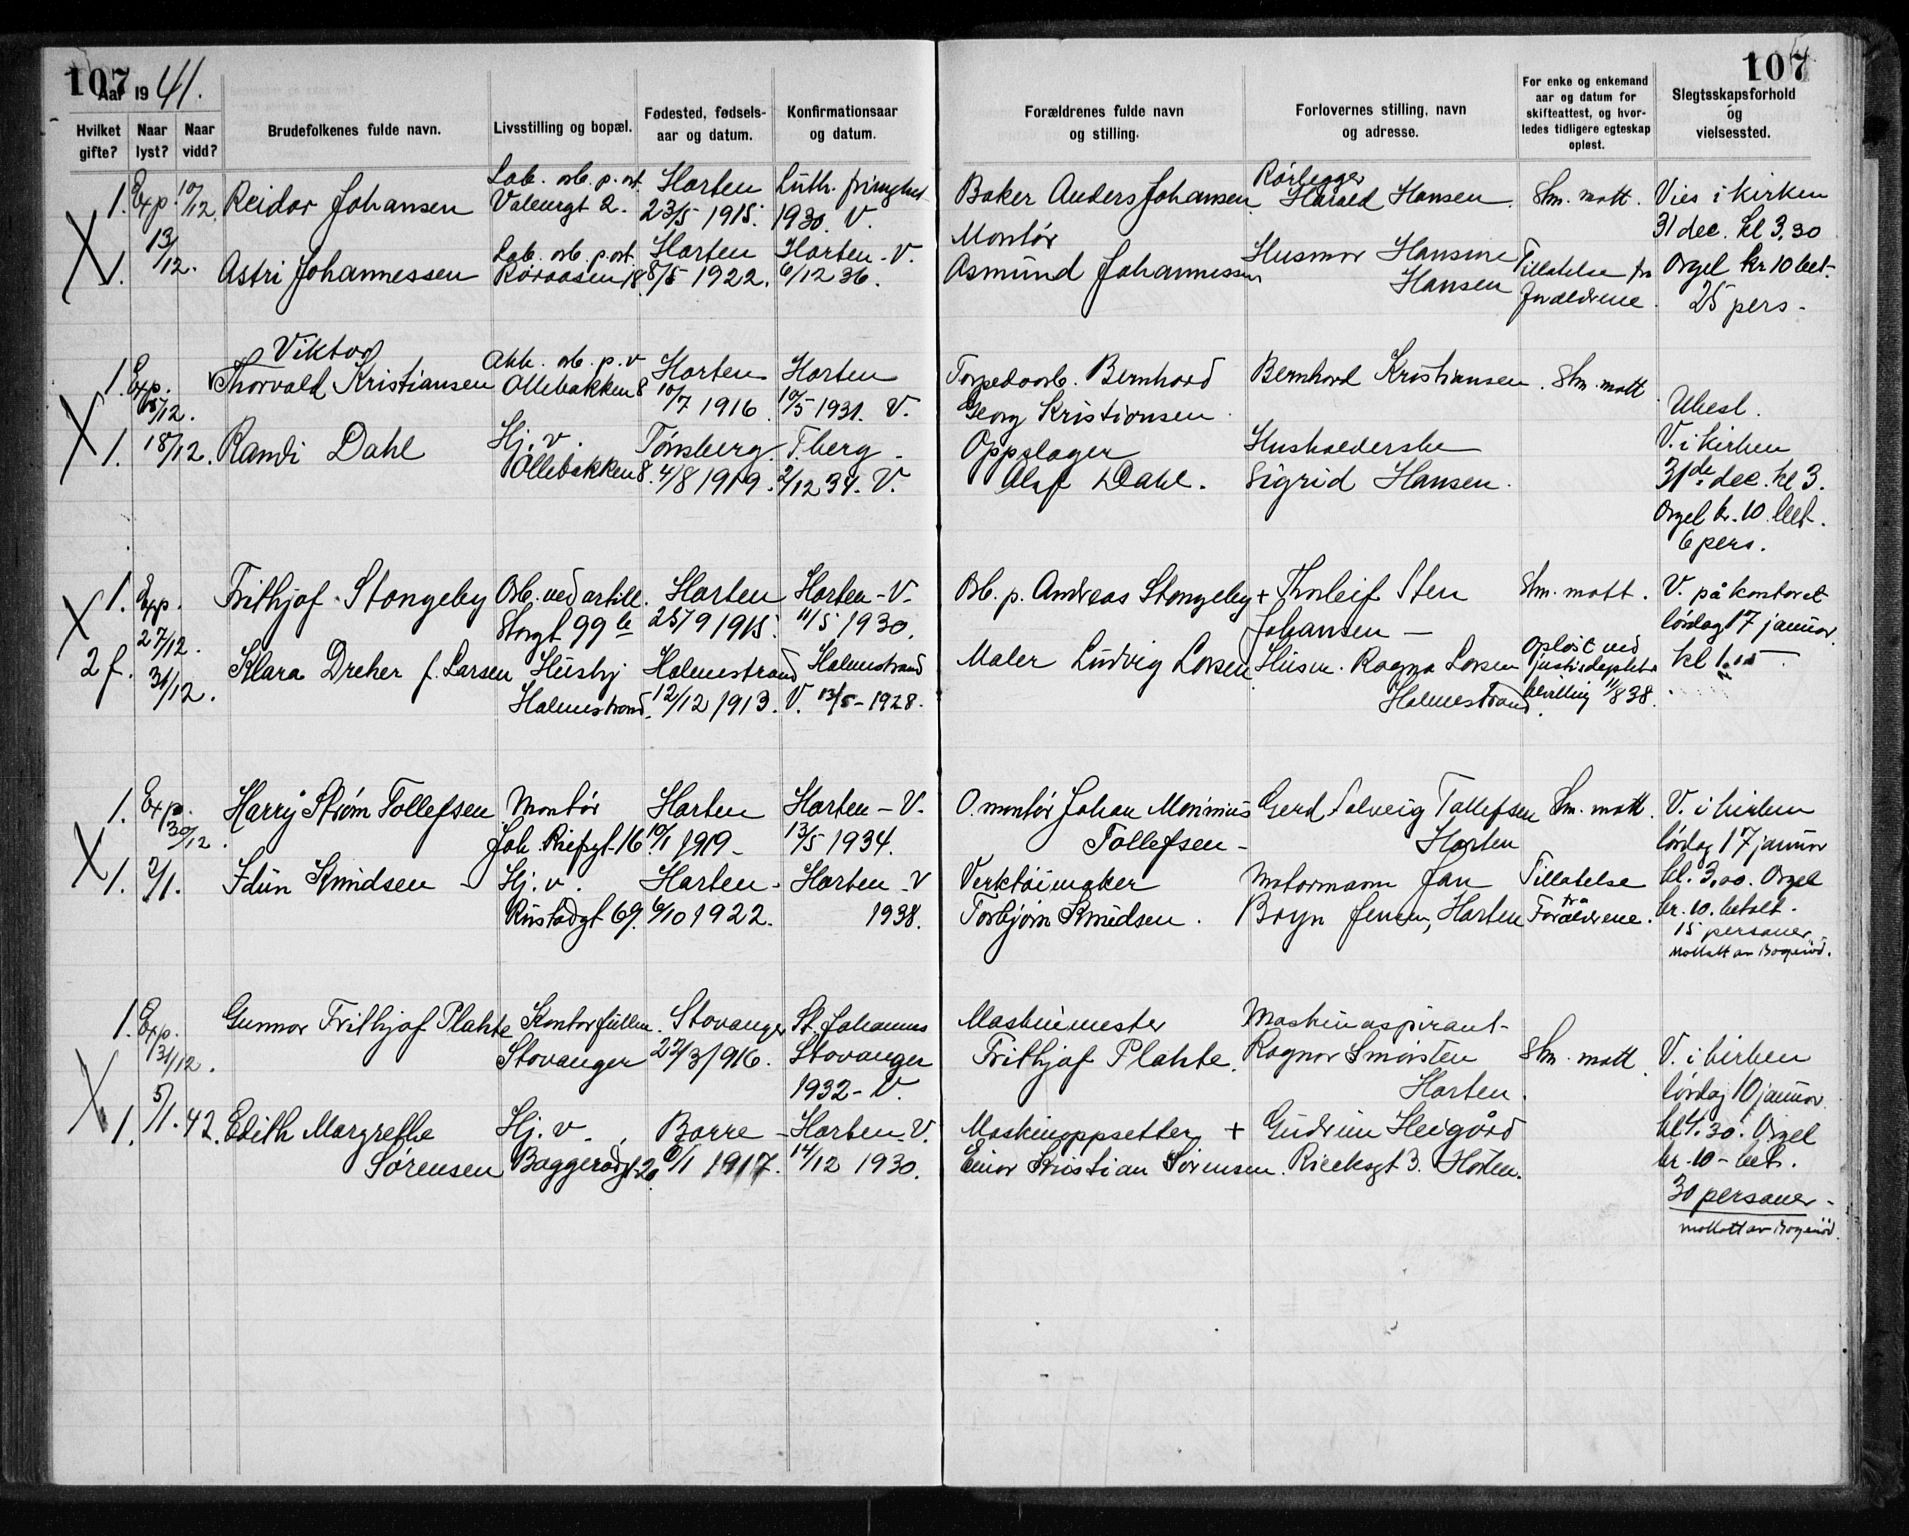 107
Aar 1941.
107
Hvilket gifte?
Naar lyst?
Naar vidd?
Brudefolkenes fulde navn.
Livsstilling og bopæl.
Fødested, fødsels-
aar og datum.
Konfirmationsaar
og datum.
Forældrenes fulde navn
og stilling.
Forlovernes stilling, navn
og adresse.
For enke og enkemand
aar og datum for
skifteattest, og hvor-
ledes tidligere egteskap
opløst.
Slegtsskapsforhold
og
vielsessted.
1. Exp. 10/12. Reidar Johansen
Valeurgt 2.
Horten
23/5 1915.
Luth.
1930. V.
Baker Anders Johansen
Rørlegger
Harald Hansen
Skm. mott.
Vies i kirken
31 dec. kl 3,30
13/12.
1. Astri Johannessen
Røraasen 18.
Horten
8/5 1922.
Horten - V.
6/12 36.
Montør
Asmund Johannessen
Husmor Hansine
Hansen
Tillatelse fra
foreldrene.
Orgel kr 10 bet.
25 pers.
Viktor
1. Exp. Thorvald Kristiansen
15/12.
Ollebakken 8
Horten
10/7 1916
Horten
10/5 1931. V.
Torpedoarb. Bernhard
Georg Kristiansen
Bernhard Kristiansen.
Skm. mott
Ubesl.
1. 18/12. Randi Dahl
Hj. v.
Ollebakken 8.
Tønsberg.
4/8 1919.
T.berg.
2/12 34. V.
Oppslager
Olaf Dahl.
Husholderske
Sigrid Hansen.
V. i kirken
31de dec. kl 3.
Orgel kr. 10 bet.
6 pers.
1. Exp. Frithjof Stangeby
27/12.
Arb. ved artill.
Storgt 99 b
Horten
25/9 1915.
Horten - V.
11/5 1930.
Arb. p. Andreas Stangeby
+ Thorleif Sten
Johansen -
Skm. mott.
V. på kontoret
lørdag 17 januar
kl 1.15
2 f. 31/12. Klara Dreher f. Larsen
Husbj
Holmestrand.
Holmestrand
12/12 1913.
Holmestrand
V. 13/5 - 1928.
Maler Ludvig Larsen
Husm. Ragna Larsen
Holmestrand.
Opløst ved
justisdeptets
bevilling 11/8 38.
1. Exp. Harry Strøm Tollefsen
30/12.
Montør
Horten
10/1 1919
Horten - V.
13/5 1934.
O. montør Johan Monimius
Tollefsen -
Gerd Solveig Tollefsen
Horten
Skm. mott.
V. i kirken
lørdag 17 januar
kl. 3,00. Orgel
kr. 10. betalt.
15 personer
Mottatt av Bogerød.
1. 2/1. Idun Knudsen -
Hj. v.
Rustadgt 69.
Horten.
6/10 1922.
Horten - V
1938.
Verktøimaker
Torbjørn Knudsen.
Motormann Jan
Boyn Jensen, Horten
Tillatelse
fra
Foreldrene.
1. Exp. Gunnar Frithjof Plahte
31/12.
Kontorfullm.
Stavanger
Stavanger
22/3 1916.
St. Johannes
Stavanger
1932 - V.
Maskinmester
Frithjof Plahte.
Maskinaspirant
Ragnar Smørsten
Horten.
Skm. mott
V. i kirken
lørdag 10 januar
kl 1.30. Orgel
kr. 10 - bet.
30 personer -
mottatt av Bogerød.
1. 5/1. 42. Edith Margrethe
Sørensen
Hj. v.
Baggerødgt. 20
Borre
6/1 1917.
Horten. V.
14/12 1930.
Maskinoppsetter
Einar Kristian Sørensen.
+ Gudrun Heigård
Rieeksgt 3. Horten.